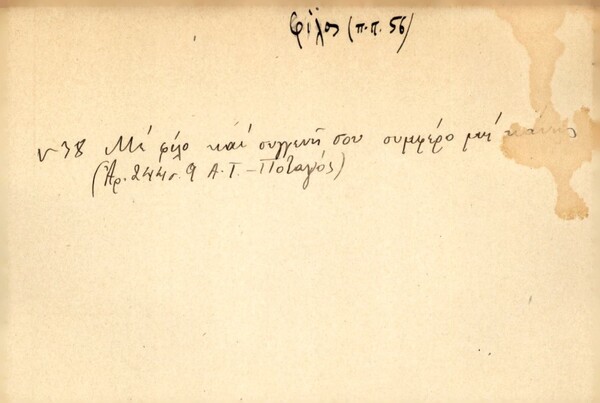 φίλος (π.π. 56)
38 Μέ φίλο καί συγγενή σου συμφέρο μή κάνης
(Ἀρ. 244 σ. 9 Α.Τ. - Ποταμός)